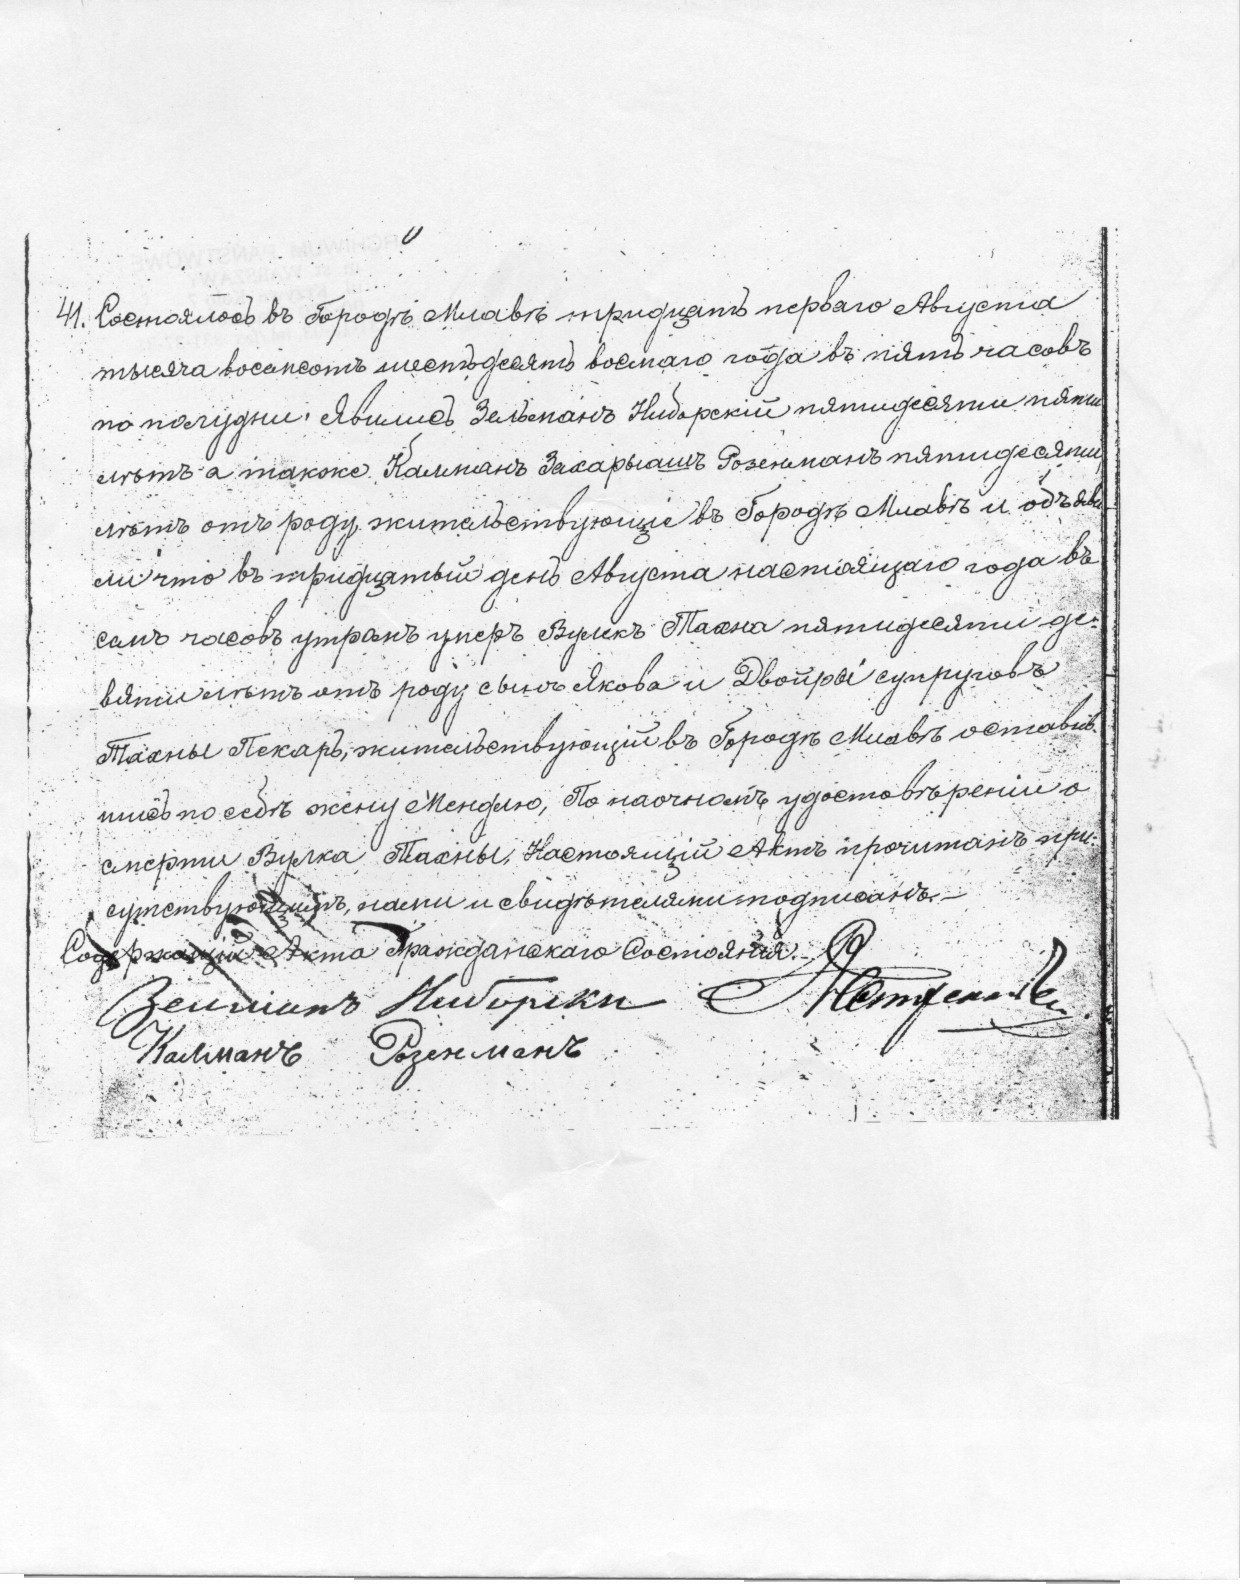 41. Состоялось въ Городѣ Млавѣ тридцать перваго Августа
тысяча восемсотъ шестьдесятъ восмаго года въ пять часовъ
по полудни. Явились Зельманъ Ниборскій пятидесяти пяти
лѣтъ а также Калманъ Захарыашъ Розенманъ пятидесяти
лѣтъ отъ роду жительствующіе въ Городѣ Млавѣ и объяви
ли что въ тридцатый день Августа настоящаго года въ
семь часовъ утромъ умеръ Вулекъ Тахна пятидесяти де-
вяти лѣтъ отъ роду сынъ Якова и Двойры супруговъ
Тахны Пекарь, жительствующій въ Городѣ Млавѣ оставив-
шись по себѣ жену Мендлю, По наочномъ удостовѣреніи о
смерти Вулка Тахны, Настоящій Актъ прочитанъ при-
сутствующимъ, нами и свидѣтелями подписанъ.—
Содержащій Акта Гражданскаго Состоянія.
Зельманъ Ниборски
Калманъ Розенманъ